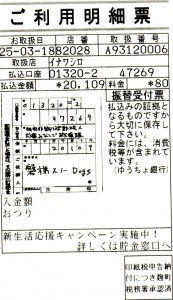 ご利用明細票
お取扱日 店番 取扱番号
25-03-18 82028 A93120006
取扱店 イナワシロ
払込口座 01320-2 47269
払込金額 *20,109 料金 *80
振替受付票
払込みの証拠と
なるものですか
ら大切に保存し
て下さい。
料金には、消費
税等が含まれて
います。
(ゆうちょ銀行)
入金額
おつり
新生活応援キャンペーン実施中!
詳しくは貯金窓口へ
印紙税申告納
付につき麹町
税務署承認済